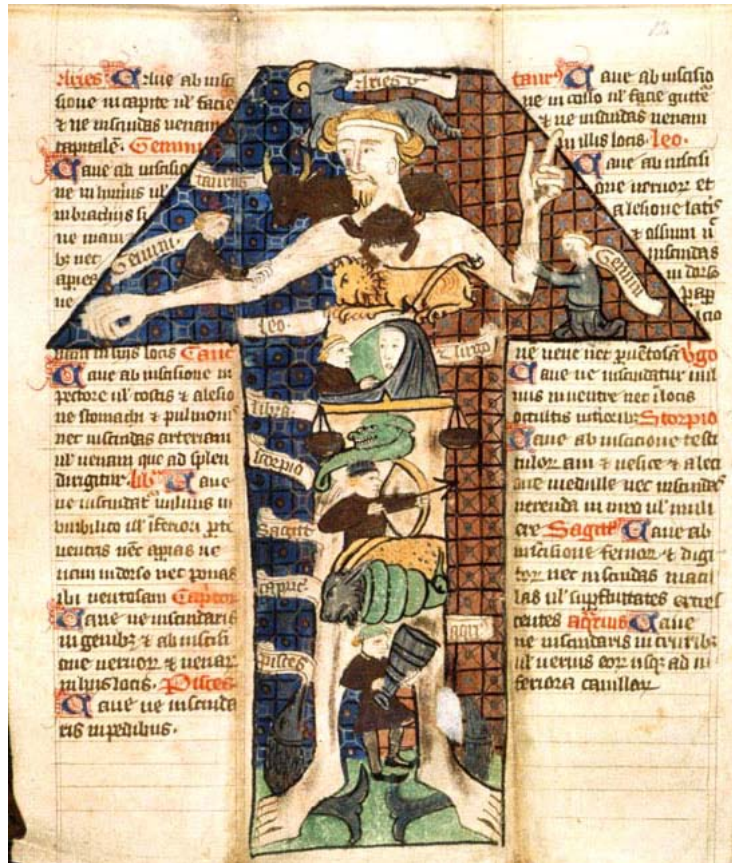 Aries Caue ab incisi
sione in capite ul' facie
& ne inscindas uenam
capitalē. Gemini
Caue ab incisiō
ne in humis ul'
in brachiis si
ue mani
bz nec
apies
ue
nam in huis locis Canc
Caue ab incisione in
pectore ul' costis & a lesio
ne stomachi & pulmonis
nec inscindas arteriam
ul' uenam que ad splen
dirigitur. lib Caue
ne inscindat uulnus in
umbilico ul' īferiori pte
uentris nec apias ue
nam in dorso nec ponas
ibi uentosam Capcor
Caue ne inscindaris
in genibz & ab incisi
one neruor & uenar
in huis locis. Pisces
Caue ne inscinda
ris in pedibus.
Aries
taurus
Gemini
Gemini
leo
Uirgo
libra
scorpio
Sagitt
capric
aqu
pisces
taur Caue ab incisio
ne in collo ul' facie guttē
& ne inscindas uenam
in illis locis. leo.
Caue ab incisi
one neruor et
a lesione latis
& ossium
inscindas
in dorso
ne uene nec Ugo
Caue ne inscindatur uul
nus in uentre nec i locis
occultis Scorpio
Caue ab incisione testi
culor ani & uesice & a lect
one medulle nec inscindas
uerenda in uiro ul' muli
ere Sagitt Caue ab
incisione femor & digi
tor nec inscindas macu
las ul' supfluitates cresc
centes aqrius Caue
ne inscindaris in cruribz
ul' neruis eor usqz ad in
feriora cauillar